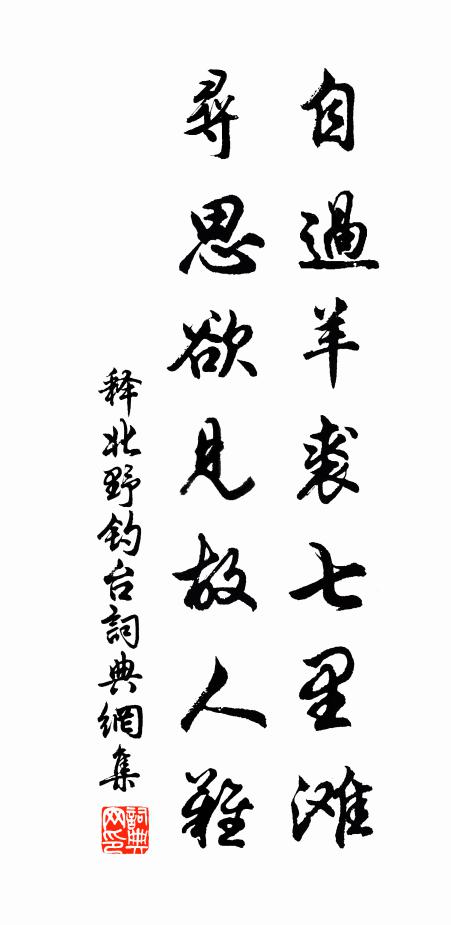 自過羊裘七里滩
尋思欲見故人難
释北野钓台詞典網集
詞典网印